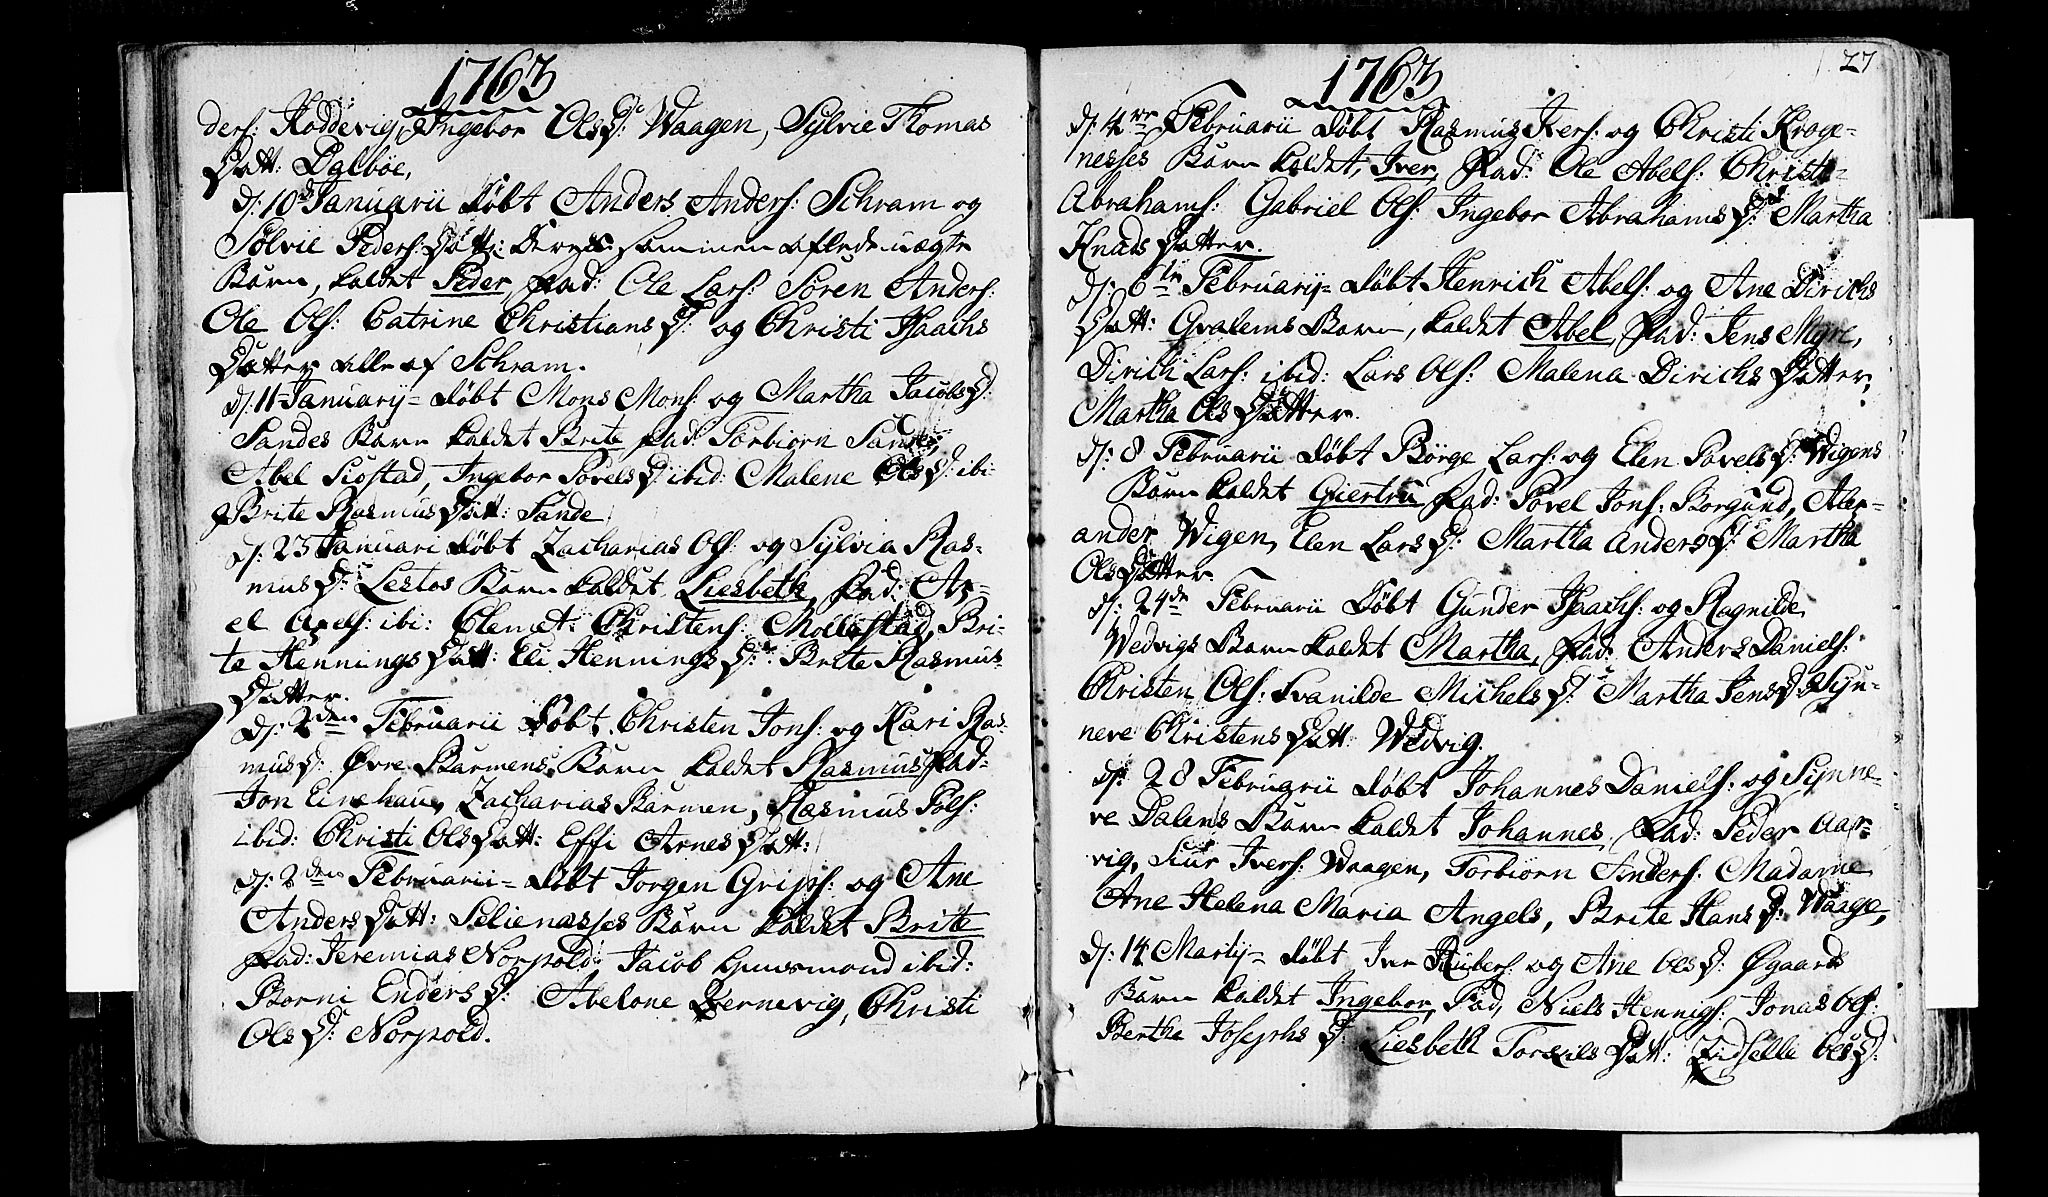 1763
ders: Hoddevig, Ingebor Ols D: Waagen, Sylvie Thomas
Datt: Dalböe,
d: 10 Januarii döbt Anders Anders: Schram og
Sölvie Peders: Datt: deres sammen aflede uægte
Barn, kaldet Peder, fad: Ole Lars: Sören Anders:
Ole Ols: Catrine Christians D: og Christi Isaachs
Datter alle af Schram.
d: 11 January döbt Mons Mons: og Martha Jacobs D:
Sandes Barn kaldet Brite, fad: Torbiörn Sande,
Abel Siöstad, Ingebor Povels D: ibid: Malene Ols D: ibi
Brite Rasmus Datt: Sande
d: 23 Januari döbt Zacharias Ols: og Sylvia Ras-
mus D: Lestos Barn kaldet Liesbeth, fad: Ax-
el Axels: ibi: Clemet Christens: Mollestad, Bri-
te Hennings Datt: Eli Hennings D: Brite Rasmus
Datter.
d: 2den Februarii döbt Christen Jons: og Kari Ras-
mus D: Øvre Barmens Barn kaldet Rasmus fad:
Jon Einehau, Zacharias Barmen, Rasmus Pols:
ibid: Christi Ols Datt: Effi Arnes Datt:
d: 2den Februarii döbt Jorgen Grips: og Ane
Anders Datt: Selienæsses Barn kaldet Britte
fad: Jeremias Norpold: Jacob huusmand ibid:
Borni Enders D: Abelone Bernevig, Christi
Ols D: Norpold.
1763
27
d: 4de Februarii döbt Rasmus Ivers: og Christi Krage-
nesses Barn kaldet, Iver, fad: Ole Abels: Christi
Abrahams: Gabriel Ols: Ingebor Abrahams D: Martha
Knuds Datter.
d: 6te February döbt Henrich Abels: og Ane Dirichs
Datt: Hvalems Barn, kaldet Abel, fad: Jens Myre,
Dirich Lars: ibid: Lars Ols: Malena Dirichs Datter,
Martha Ols Datter.
d: 8 Februarii döbt Börge Lars: og Elen Povels D: Wigens
Barn kaldet Giertru fad: Povel Jons: Borgund, Alex-
ander Wigen, Elen Lars D: Martha Anders D: Martha
Ols Datter.
d: 24de Februarii döbt Gunder Isaachs: og Ragnilde
Wedvigs Barn kaldet Martha, fad: Anders Daniels:
Christen Ols: Svanilde Michels D: Martha Jens D: Syn-
neve Christens Datt: Wedvig.
d: 28 Februarii döbt Johannes Daniels: og Synne-
ve Dalens Barn kaldet Johannes, fad: Peder Aar-
vig, Siur Ivers: Waagen, Torbiörn Anders: Madame
Ane Helena Maria Angels, Brite Hans D: Waage,
d: 14 Marty döbt Iver Rubers: og Ane Ols D: Øgaards
Barn kaldet Ingebor, fad, Niels Hennigs: Jonas Ols:
Berthe Josephs D: Liesbeth Torkils Datt: Zidselle Ols D: